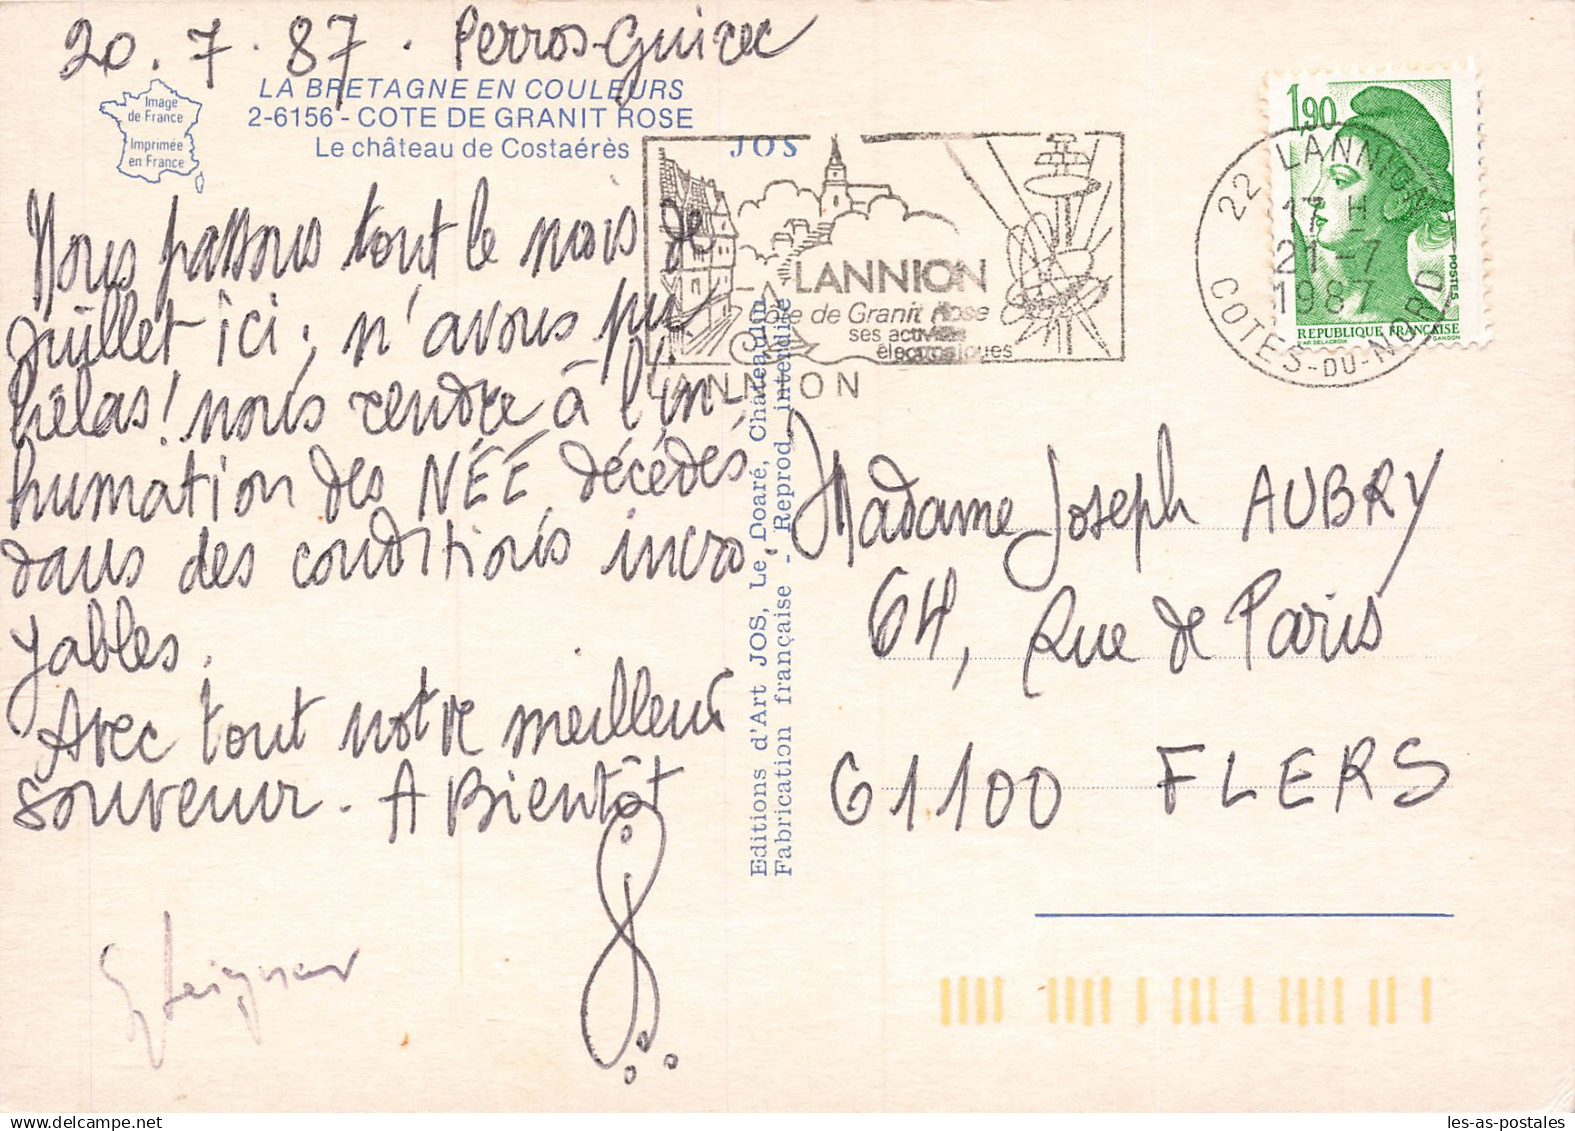 20.7.87. Perros-Guirec
LA BRETAGNE EN COULEURS
2-6156 - COTE DE GRANIT ROSE
Le château de Costaérès
Image
de France
Imprimée
en France
JOS
Nous passons tout le mois de
Juillet ici; n'avons pu
hélas! nous rendre à l'in-
humation des NÉÉ, décédés
dans des conditions incro-
yables.
Avec tout notre meilleur
souvenir. A Bientôt
Editions d'Art JOS, Le Doaré, Chateaulin
Fabrication française - Reprod. interdite
LANNION
Côte de Granit Rose
ses activités
électroniques
LANNION
22 LANNION
17 H
21-7
1987
COTES-DU-NORD
1,90
POSTES
REPUBLIQUE FRANÇAISE
GANDON
Madame Joseph AUBRY
64, Rue de Paris
61100 FLERS
les-as-postales